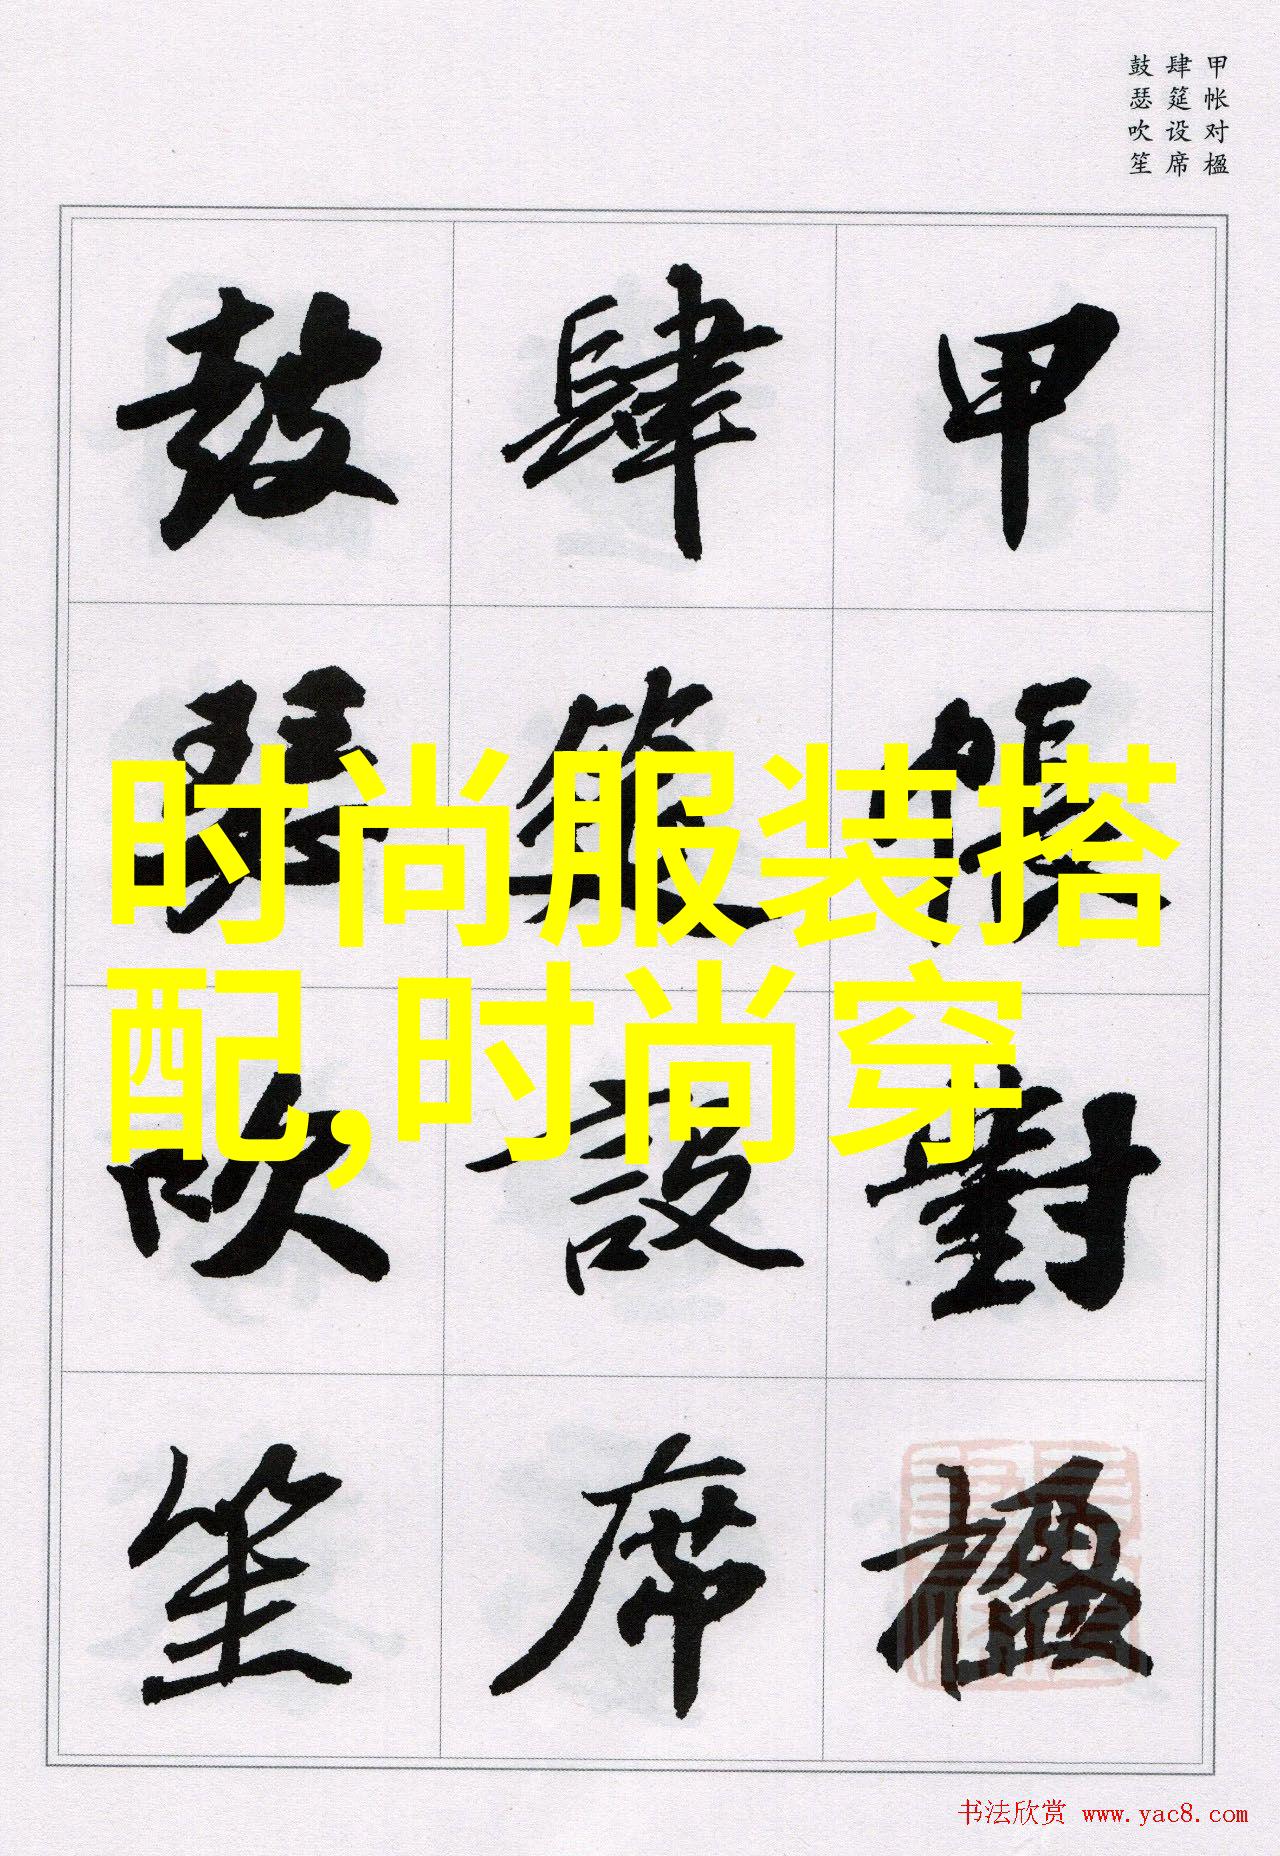 甲帐对楹
肆筵设席
鼓瑟吹笙
甲帳對楹
肆筵設席
鼓瑟吹笙
时尚服装搭
配,时尚穿
书法欣赏 www.yac8.com